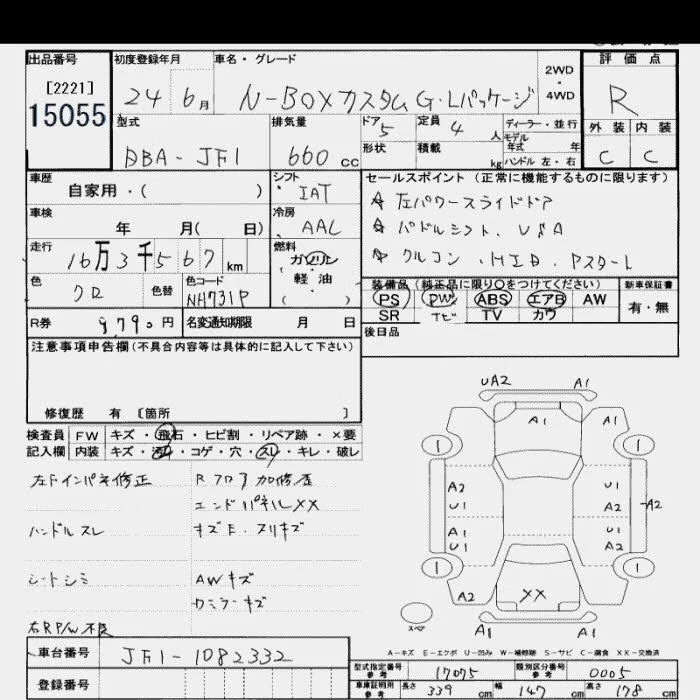 出品番号 初度登録年月 車名・グレード 評価点
[2221] 2WD
15055 24 6月 N-BOXカスタム G・Lパッケージ ・ R
4WD
型式 排気量 ドア 5 定員 4人 ディーラー・並行 外装 内装
モデル年式 年
DBA-JF1 660 cc 形状 積載 kg ハンドル 左・右 C C
車歴 シフト セールスポイント (正常に機能するものに限ります)
自家用・( ) IAT ☆ 左パワースライドドア
車検 冷房 ☆ パドルシフト、USA
年 月( 日) AAC
走行 燃料 ☆ クルコン、HID、Pスタート
16万3千567km ガソリン・軽油・( )
色 色替 色コード 装備品 (純正品に限り○をつけてください) 新車保証書
クロ NH731P PS PW ABS エアB AW 有・無
SR ナビ TV カワ
R券 9790円 名変通知期限 月 日 後日品
注意事項申告欄(不具合内容等は具体的に記入して下さい)
修復歴 有 〔箇所 〕
検査員 FW キズ・飛石・ヒビ割・リペア跡・×要
記入欄 内装 キズ・汚れ・コゲ・穴・スレ・キレ・破レ
左Fインパネ修正 Rフロア加修歴
エンドパネルXX
ハンドルスレ キズE、スリキズ
シートシミ AWキズ
ロミラーキズ
右RP/W不良
UA2 A1
A1 A1
1 1
A2 U1
U1 A2 A2
A1 U1
U1 A2
1 1
A2 XX
スペア A1 A1
A-キズ E-エクボ U-凹み W-補修跡 S-サビ C-腐食 XX-交換済
車台番号 JF1-1082332
型式指定番号 参考 17075 類別区分番号 参考 0005
登録番号
車庫証明用 参考 長さ 339 cm 幅 147 cm 高さ 178 cm